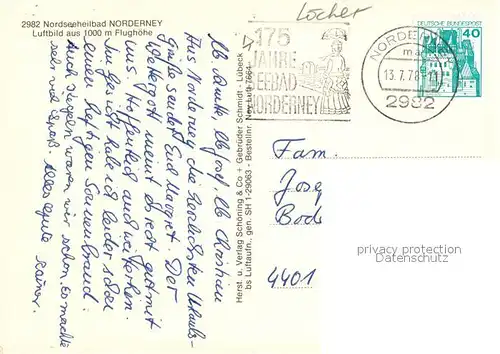 2982 Nordseeheilbad NORDERNEY
Luftbild aus 1000 m Flughöhe
Löcher
175
JAHRE
SEEBAD
NORDERNEY
NORDERNEY
13.7.78
2982
DEUTSCHE BUNDESPOST
40
Aus Norderney die herzlichsten Urlaubs-
grüße sendet Euch Margret. Der
Wettergott meint es recht gut mit
uns. Hoffentlich auch weiterhin.
Im Gesicht habe ich leider schon
einen heftigen Sonnenbrand.
Auch segeln waren wir schon, es machte
sehr viel Spaß. Alles gute
Herst. u. Verlag Schöning & Co + Gebrüder Schmidt - Lübeck
bs Luftaufn., gen. SH 1-29063 - Bestellnr.
Fam.
Josef
4401
privacy protection
Datenschutz